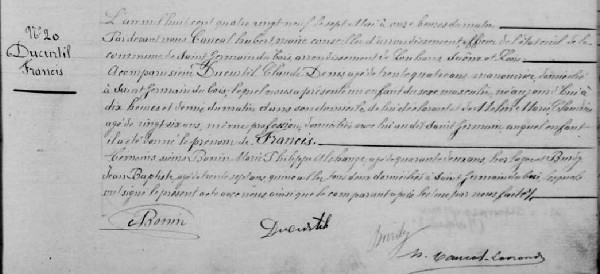 N° 20
Ducurtil
Francis
L'an mil huit cent quatre vingt neuf le sept Mai à onze heures du matin
Pardevant nous Cancal Hubert maire conseiller d'arrondissement, officier de l'état civil de la
commune de Saint Germain du Bois, arrondissement de Louhans, Saône et Loire
A comparu sieur Ducurtil Claude Denis âgé de trente quatre ans, manouvrier, domicilié
à Saint Germain du bois, lequel nous a présenté un enfant du sexe masculin, né aujourd'hui à
dix heures et demie du matin, dans son domicile, de lui déclarant et de Marie
âgée de vingt six ans, même profession, domiciliée avec lui audit Saint Germain, auquel enfant
il a été donné le prénom de Francis.
Témoins sieurs Bonin Marie Philippe âgé de quarante ans, et Burdy
Jean Baptiste, âgé de trente sept ans, tous deux domiciliés à Saint Germain du bois, lesquels
ont signé le présent acte avec nous ainsi que le comparant après lecture par nous faite.
Bonin
Ducurtil
Burdy
H.